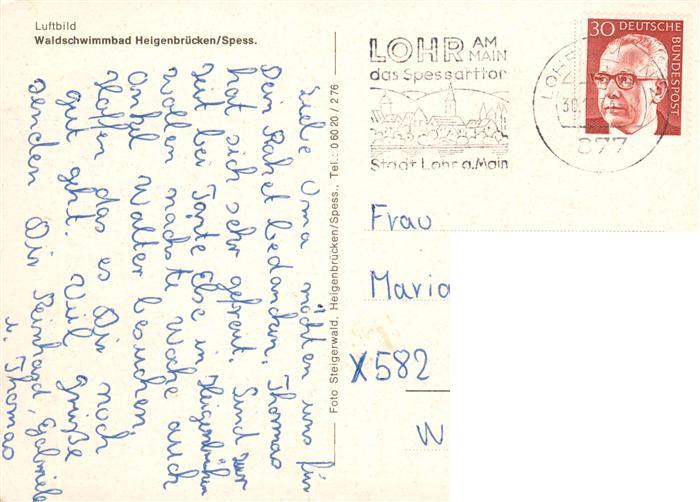 Luftbild
Waldschwimmbad Heigenbrücken/Spess.
Liebe Oma möchten uns für
Dein Paket bedanken, Thomas
hat sich sehr gefreut. Sind zur
Zeit bei Tante Else in Heigenbrücken
Wollen nächste Woche auch
Onkel Walter besuchen.
Hoffen das es Dir noch
gut geht. Viel Grüße
senden Dir Reinhard, Gabriele
u. Thomas
Foto Steigerwald, Heigenbrücken/Spess., Tel.: 0 60 20 / 2 76
LOHR AM MAIN
das Spessarttor
Stadt Lohr a. Main
LOHR
30
877
30 DEUTSCHE BUNDESPOST
Frau
Maria
X582
W